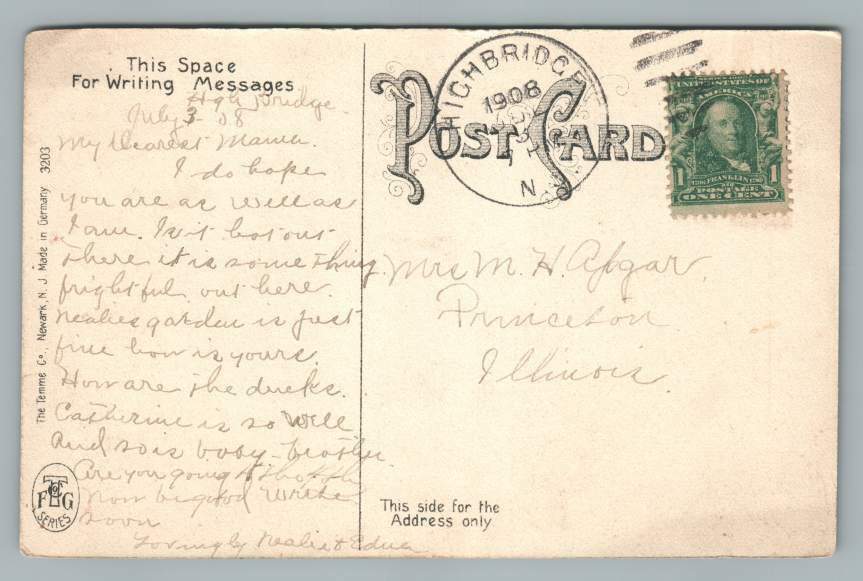 This Space
For Writing Messages
High Bridge
July 3 - 08
My Dearest Mama.
I do hope
you are as well as
I am. Is it hot out
there it is some thing
frightful out here.
Nealies garden is just
fine how is yours.
How are the ducks.
Catherine is so well
and so is baby-brother
Are you going to
Now be good write
soon
Lovingly Nealie & Edna
The Temme Co., Newark, N. J. Made in Germany 3203
T Co
F G
SERIES
POST CARD
HIGHBRIDGE
1908
N.
UNITED STATES OF
AMERICA
1 FRANKLIN 1
POSTAGE
ONE CENT
Mrs M. H. Apgar.
Princeton
Illinois.
This side for the
Address only